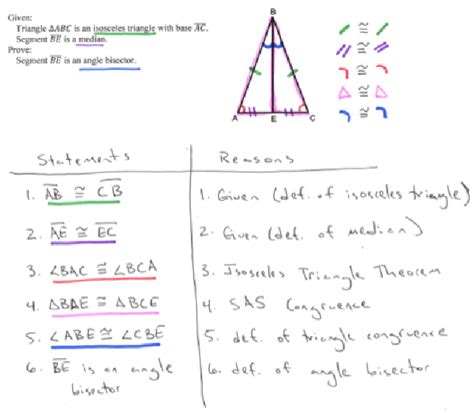 Given:
Triangle ΔABC is an isosceles triangle with base AC.
Segment BE is a median.
Prove:
Segment BE is an angle bisector.
B
A E C
≅
≅
≅
≅
≅
Statements Reasons
1. AB ≅ CB 1. Given (def. of isosceles triangle)
2. AE ≅ EC 2. Given (def. of median)
3. ∠BAC ≅ ∠BCA 3. Isosceles Triangle Theorem
4. ΔBAE ≅ ΔBCE 4. SAS Congruence
5. ∠ABE ≅ ∠CBE 5. def. of triangle congruence
6. BE is an angle 6. def. of angle bisector
bisector